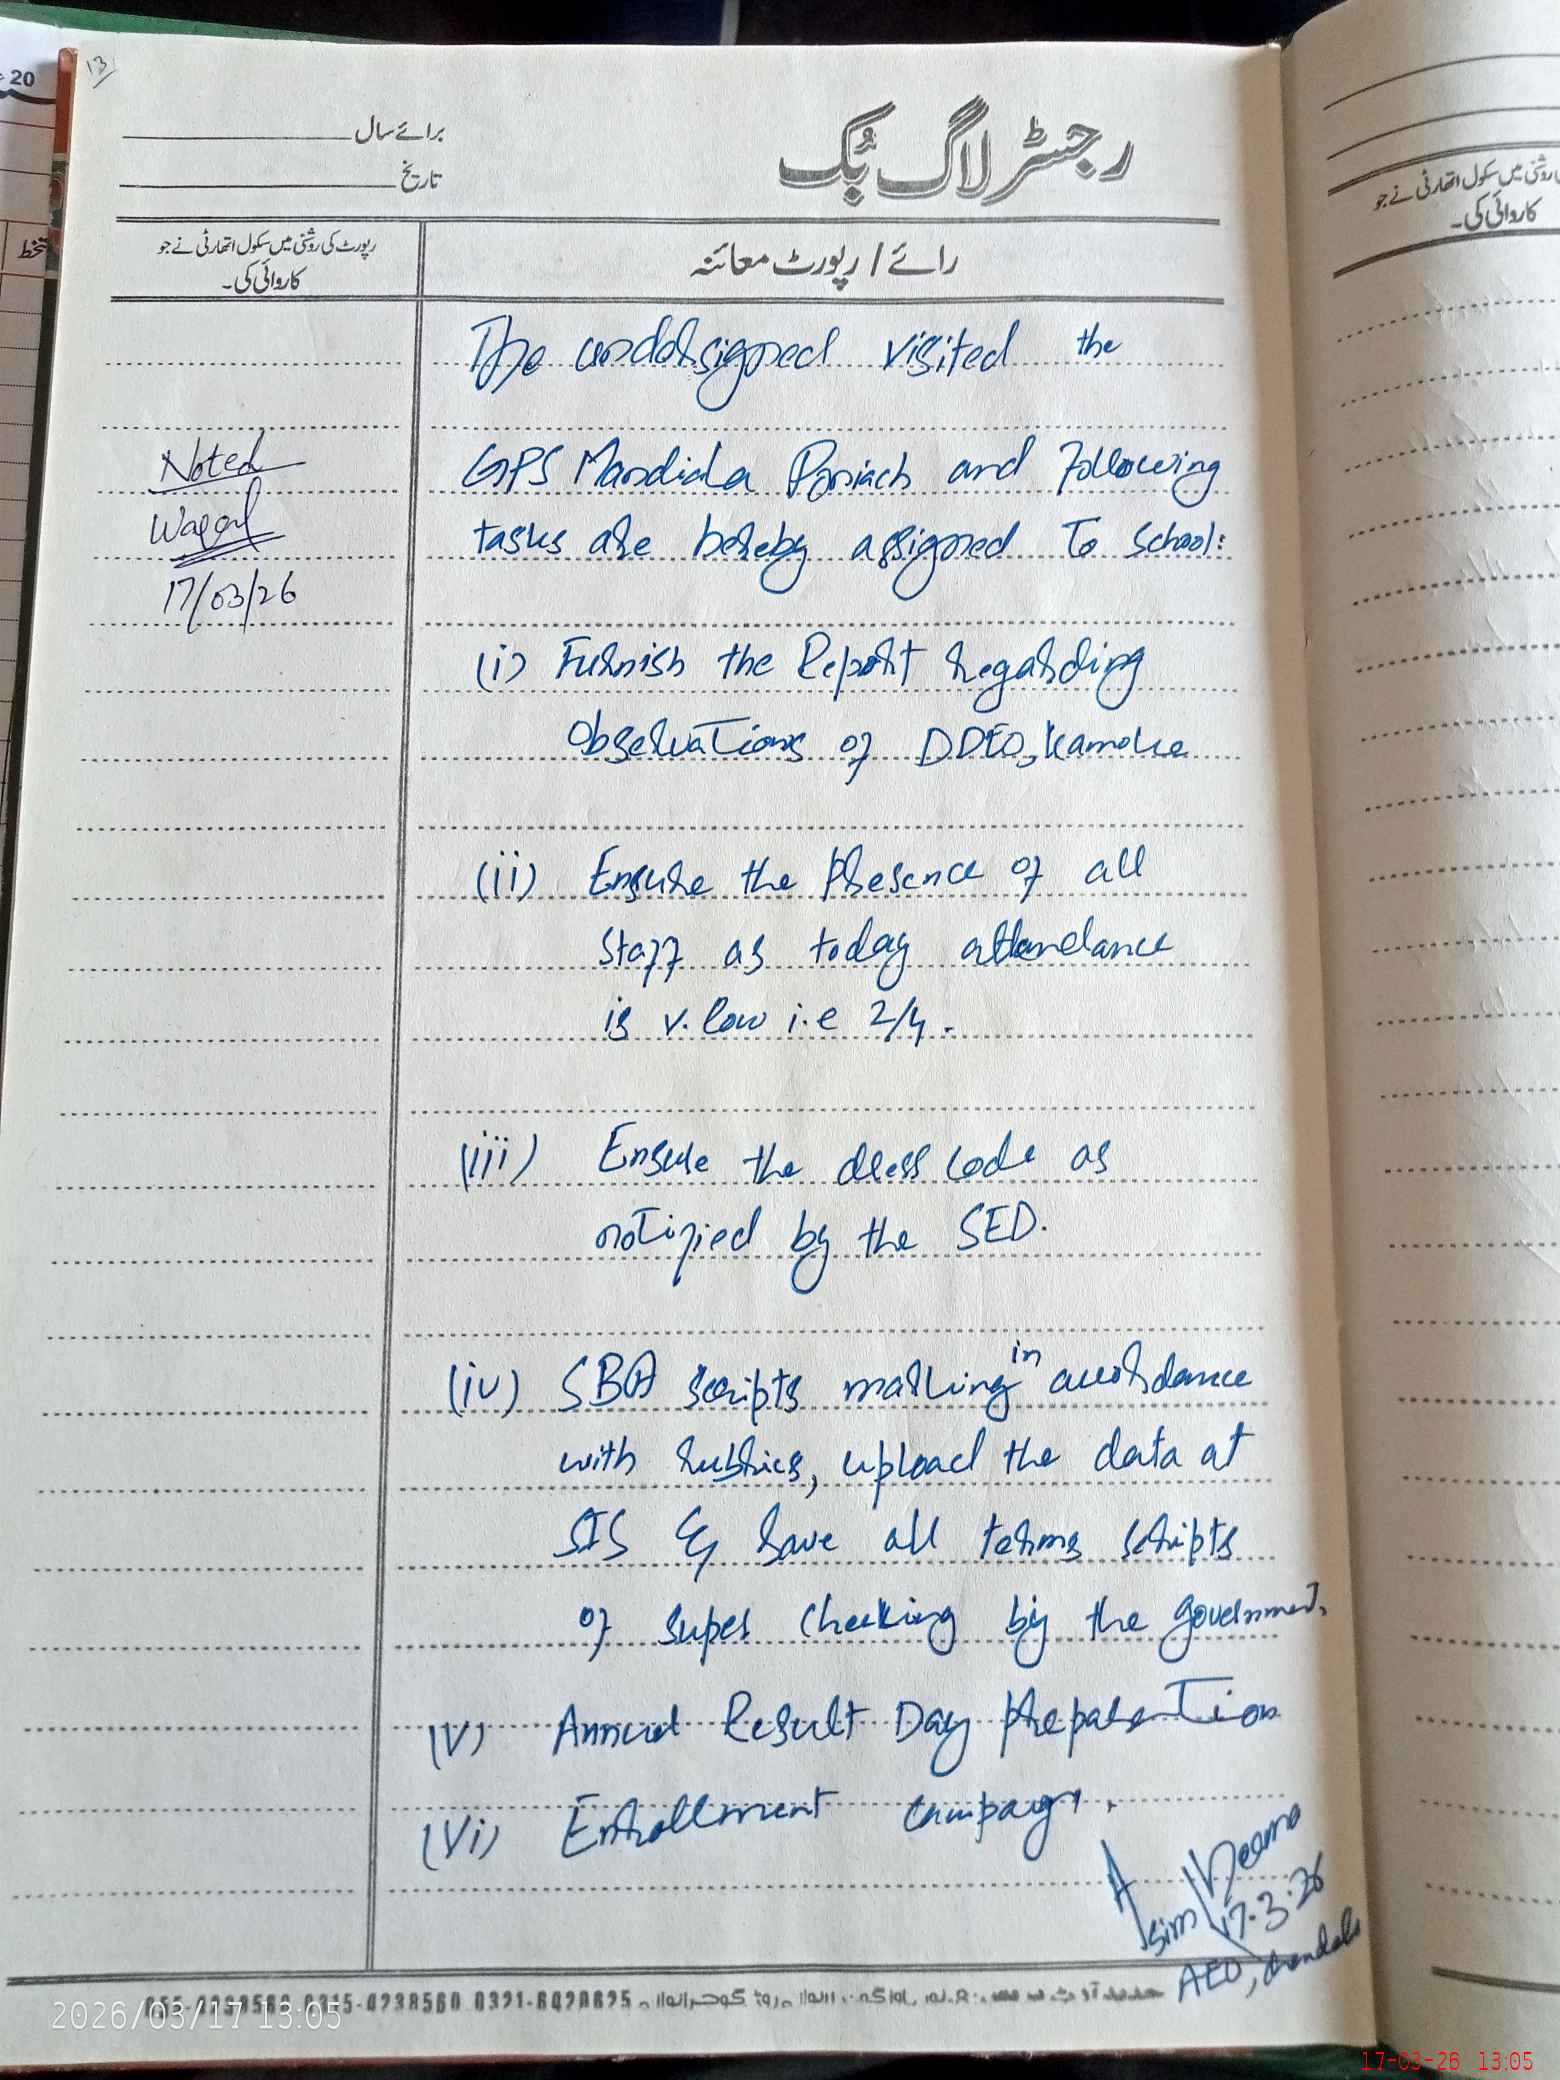 13
رجسٹر لاگ بُک
برائے سال
تاریخ
رائے / رپورٹ معائنہ
رپورٹ کی روشنی میں سکول اتھارٹی نے جو
کاروائی کی۔
The undersigned visited the
GPS Mandiala Poniach and following
tasks are hereby assigned To School:
(i) Furnish the Report regarding
Observations of DDEO, Kamoke
(ii) Ensure the presence of all
staff as today attendance
is v. low i.e 2/4.
(iii) Ensure the dress code as
notified by the SED.
(iv) SBA scripts marking in accordance
with rubrics, upload the data at
SIS & save all terms scripts
of super checking by the government.
(v) Annual Result Day preparation
(vi) Enrollment campaign.
Asim
17-3-26
AEO,
Noted
17/03/26
20
تخط
روشنی میں سکول اتھارٹی نے جو
کاروائی کی۔
2026/03/17 13:05
17-03-26 13:05